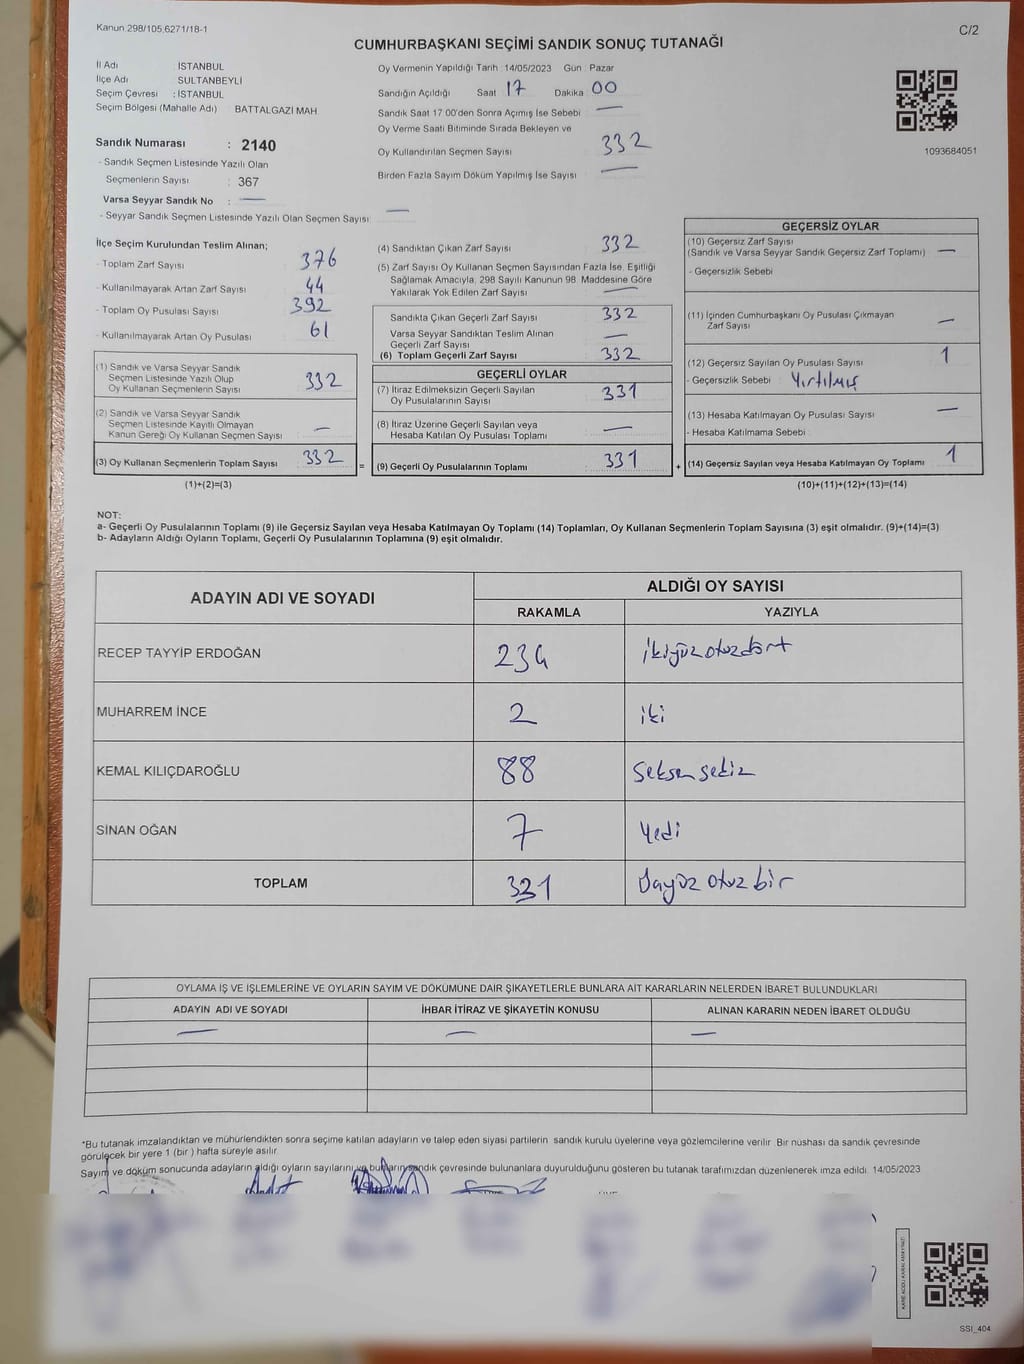 Kanun 298/105,6271/18-1
C/2
CUMHURBAŞKANI SEÇİMİ SANDIK SONUÇ TUTANAĞI
İl Adı İSTANBUL
İlçe Adı SULTANBEYLİ
Seçim Çevresi : İSTANBUL
Seçim Bölgesi (Mahalle Adı) BATTALGAZİ MAH
Sandık Numarası : 2140
- Sandık Seçmen Listesinde Yazılı Olan
Seçmenlerin Sayısı : 367
Varsa Seyyar Sandık No : —
- Seyyar Sandık Seçmen Listesinde Yazılı Olan Seçmen Sayısı —
Oy Vermenin Yapıldığı Tarih :14/05/2023 Gün : Pazar
Sandığın Açıldığı Saat 17 Dakika 00
Sandık Saat 17 00'den Sonra Açımış İse Sebebi —
Oy Verme Saati Bitiminde Sırada Bekleyen ve
Oy Kullandırılan Seçmen Sayısı 332
Birden Fazla Sayım Döküm Yapılmış İse Sayısı —
1093684051
İlçe Seçim Kurulundan Teslim Alınan;
- Toplam Zarf Sayısı 376
- Kullanılmayarak Artan Zarf Sayısı 44
- Toplam Oy Pusulası Sayısı 392
- Kullanılmayarak Artan Oy Pusulası 61
(1) Sandık ve Varsa Seyyar Sandık
Seçmen Listesinde Yazılı Olup
Oy Kullanan Seçmenlerin Sayısı 332
(2) Sandık ve Varsa Seyyar Sandık
Seçmen Listesinde Kayıtlı Olmayan
Kanun Gereği Oy Kullanan Seçmen Sayısı —
(3) Oy Kullanan Seçmenlerin Toplam Sayısı 332
(1)+(2)=(3)
(4) Sandıktan Çıkan Zarf Sayısı 332
(5) Zarf Sayısı Oy Kullanan Seçmen Sayısından Fazla İse, Eşitliği
Sağlamak Amacıyla, 298 Sayılı Kanunun 98. Maddesine Göre
Yakılarak Yok Edilen Zarf Sayısı —
Sandıkta Çıkan Geçerli Zarf Sayısı 332
Varsa Seyyar Sandıktan Teslim Alınan
Geçerli Zarf Sayısı —
(6) Toplam Geçerli Zarf Sayısı 332
GEÇERLİ OYLAR
(7) İtiraz Edilmeksizin Geçerli Sayılan
Oy Pusulalarının Sayısı 331
(8) İtiraz Üzerine Geçerli Sayılan veya
Hesaba Katılan Oy Pusulası Toplamı —
= (9) Geçerli Oy Pusulalarının Toplamı 331 +
GEÇERSİZ OYLAR
(10) Geçersiz Zarf Sayısı
(Sandık ve Varsa Seyyar Sandık Geçersiz Zarf Toplamı) —
- Geçersizlik Sebebi
(11) İçinden Cumhurbaşkanı Oy Pusulası Çıkmayan
Zarf Sayısı —
(12) Geçersiz Sayılan Oy Pusulası Sayısı 1
- Geçersizlik Sebebi : Yırtılmış
(13) Hesaba Katılmayan Oy Pusulası Sayısı —
- Hesaba Katılmama Sebebi :
(14) Geçersiz Sayılan veya Hesaba Katılmayan Oy Toplamı 1
(10)+(11)+(12)+(13)=(14)
NOT:
a- Geçerli Oy Pusulalarının Toplamı (9) ile Geçersiz Sayılan veya Hesaba Katılmayan Oy Toplamı (14) Toplamları, Oy Kullanan Seçmenlerin Toplam Sayısına (3) eşit olmalıdır. (9)+(14)=(3)
b- Adayların Aldığı Oyların Toplamı, Geçerli Oy Pusulalarının Toplamına (9) eşit olmalıdır.
ADAYIN ADI VE SOYADI ALDIĞI OY SAYISI
RAKAMLA YAZIYLA
RECEP TAYYİP ERDOĞAN 234 ikiyüzotuzdört
MUHARREM İNCE 2 iki
KEMAL KILIÇDAROĞLU 88 Seksen sekiz
SİNAN OĞAN 7 Yedi
TOPLAM 331 Üçyüz otuz bir
OYLAMA İŞ VE İŞLEMLERİNE VE OYLARIN SAYIM VE DÖKÜMÜNE DAİR ŞİKAYETLERLE BUNLARA AİT KARARLARIN NELERDEN İBARET BULUNDUKLARI
ADAYIN ADI VE SOYADI İHBAR İTİRAZ VE ŞİKAYETİN KONUSU ALINAN KARARIN NEDEN İBARET OLDUĞU
— — —
*Bu tutanak imzalandıktan ve mühürlendikten sonra seçime katılan adayların ve talep eden siyasi partilerin sandık kurulu üyelerine veya gözlemcilerine verilir. Bir nüshası da sandık çevresinde
görülecek bir yere 1 (bir) hafta süreyle asılır.
Sayım ve döküm sonucunda adayların aldığı oyların sayılarını ve bunların sandık çevresinde bulunanlara duyurulduğunu gösteren bu tutanak tarafımızdan düzenlenerek imza edildi. 14/05/2023
SSI_404